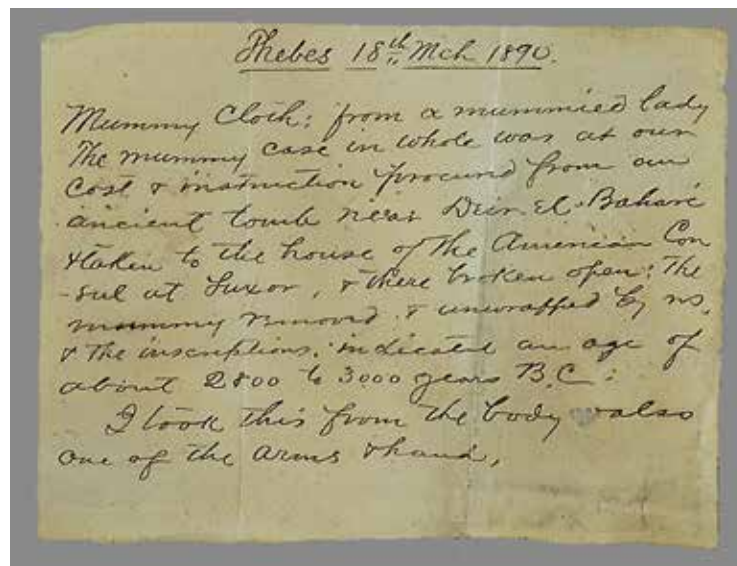 Thebes 18th Mch 1890.
Mummy Cloth: from a mummied lady
The mummy case in whole was at our
cost & instruction procured from an
ancient tomb near Deir El-Bahari
& taken to the house of the American Con
-sul at Luxor, & there broken open: The
mummy removed & unwrapped by us,
& the inscriptions. indicated an age of
about 2800 to 3000 years B.C:
I took this from the body & also
one of the arms & hand,